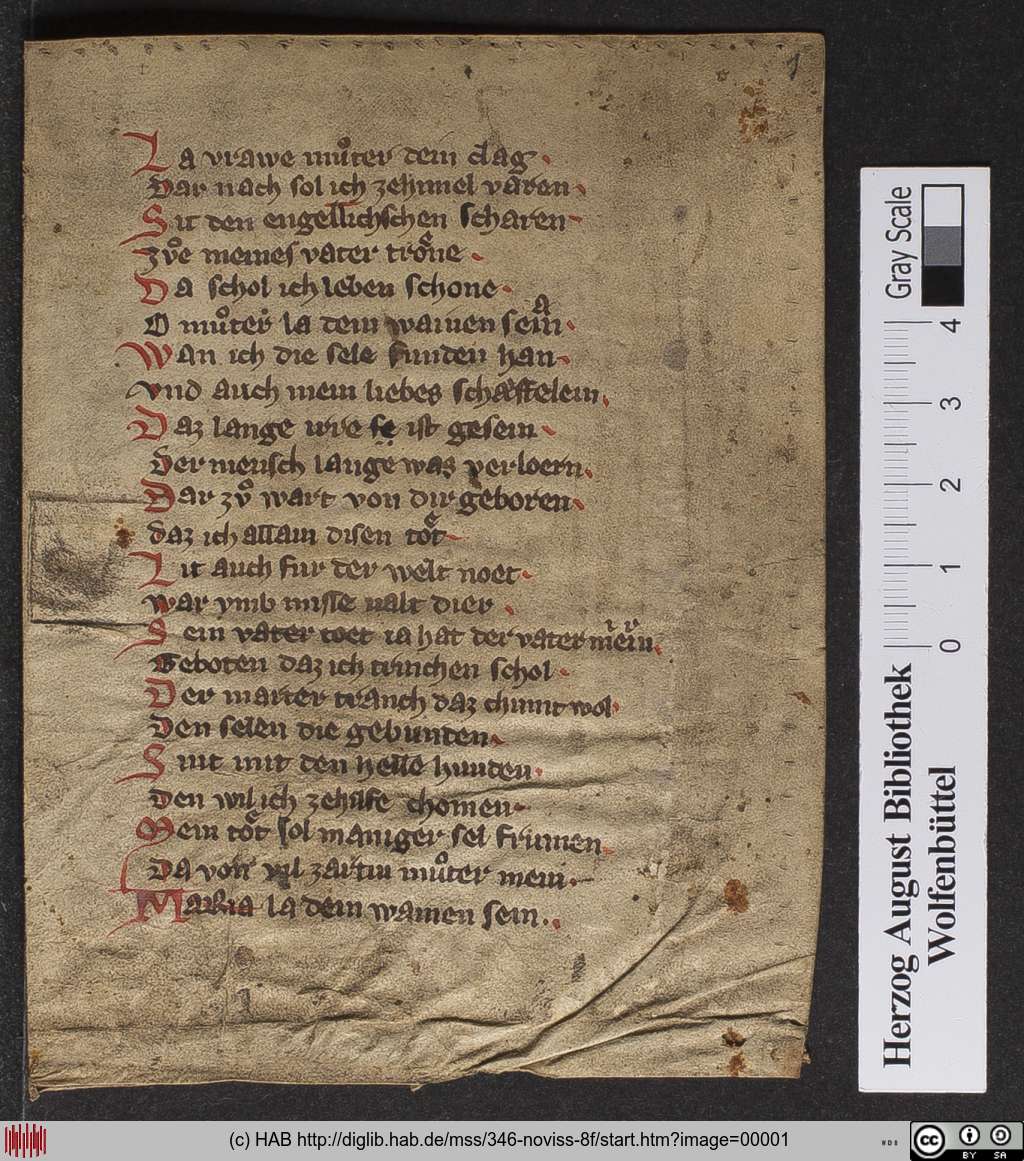 La vrawe muͦter dein clag
Dar nach sol ich zehimel varen
Sit den engellichschen scharen
Zvͦe meines vater trone
Da schol ich leben schone
O muͦter la dein wainen sein
Wan ich die sele funden han
Vnd auch mein liebes schæffelein
Daz lange irre ist gesein
Der mensch lange was verloern
Dar zvͦ wart von dir geboren
daz ich allain disen tot
Lit auch fur der welt noet
war vmb misse valt dier
Sein vater toet ia hat der vater
Geboten daz ich trinchen schol
Der marter tranch daz chumt wol
Den selen die gebunten
Sint mit den helle hunden
Den wil ich zehilfe chomen
Mein tot sol maniger sel frumen
Da von vil zartiu muͦter mein
Maria la dein wainen sein
1
Gray Scale
0 1 2 3 4
Herzog August Bibliothek
Wolfenbüttel
(c) HAB http://diglib.hab.de/mss/346-noviss-8f/start.htm?image=00001
WDB
cc BY SA